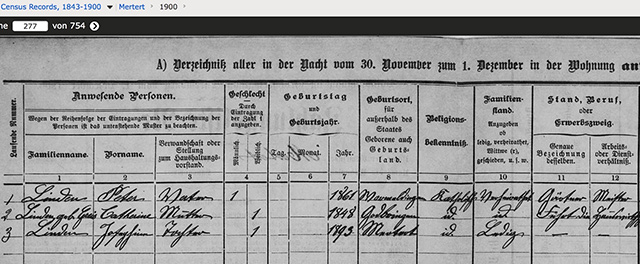 Census Records, 1843-1900 ▼ Mertert › 1900 ›
ne 277 von 754
A) Verzeichniß aller in der Nacht vom 30. November zum 1. Dezember in der Wohnung an
Laufende Nummer.
Anwesende Personen.
Wegen der Reihenfolge der Eintragungen und der Bezeichnung der
Personen ist das untenstehende Muster zu beachten.
Familienname.
Vorname.
Verwandschaft oder
Stellung
zum Haushaltungs-
vorstand.
Geschlecht
Durch
Eintragung
der Zahl 1
anzugeben.
Männlich
Weiblich
Geburtstag
und
Geburtsjahr.
Tag.
Monat.
Jahr.
Geburtsort,
für
außerhalb des
Staates
Geborene auch
Geburts-
land.
Religions-
bekenntniß.
Familien-
stand.
Anzugeben
ob
ledig, verheirathet,
Wittwe (r),
geschieden, u. s. w.
Stand, Beruf,
oder
Erwerbszweig.
Genaue
Bezeichnung
desselben.
Arbeits- oder
Dienst-
verhältniß.
1 2 3 4 5 6 7 8 9 10 11 12
1 Linden Peter Vater 1 1861 Kathol. Verheirathet Gärtner Meister
2 Linden geb. Catharina Mutter 1 1848 id. id Führt die
3 Linden Josephine Tochter 1 1893 Mertert id. Ledig — —